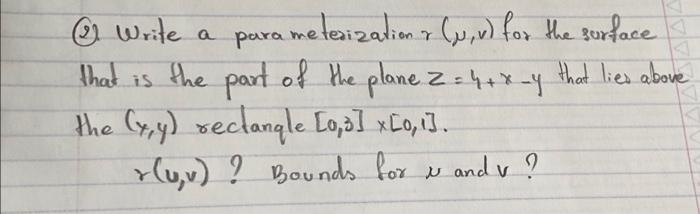 ② Write a parameterization r(u,v) for the surface
that is the part of the plane z = 4 + x - y that lies above
the (x,y) rectangle [0,3] x [0,1].
r(u,v) ? Bounds for u and v ?